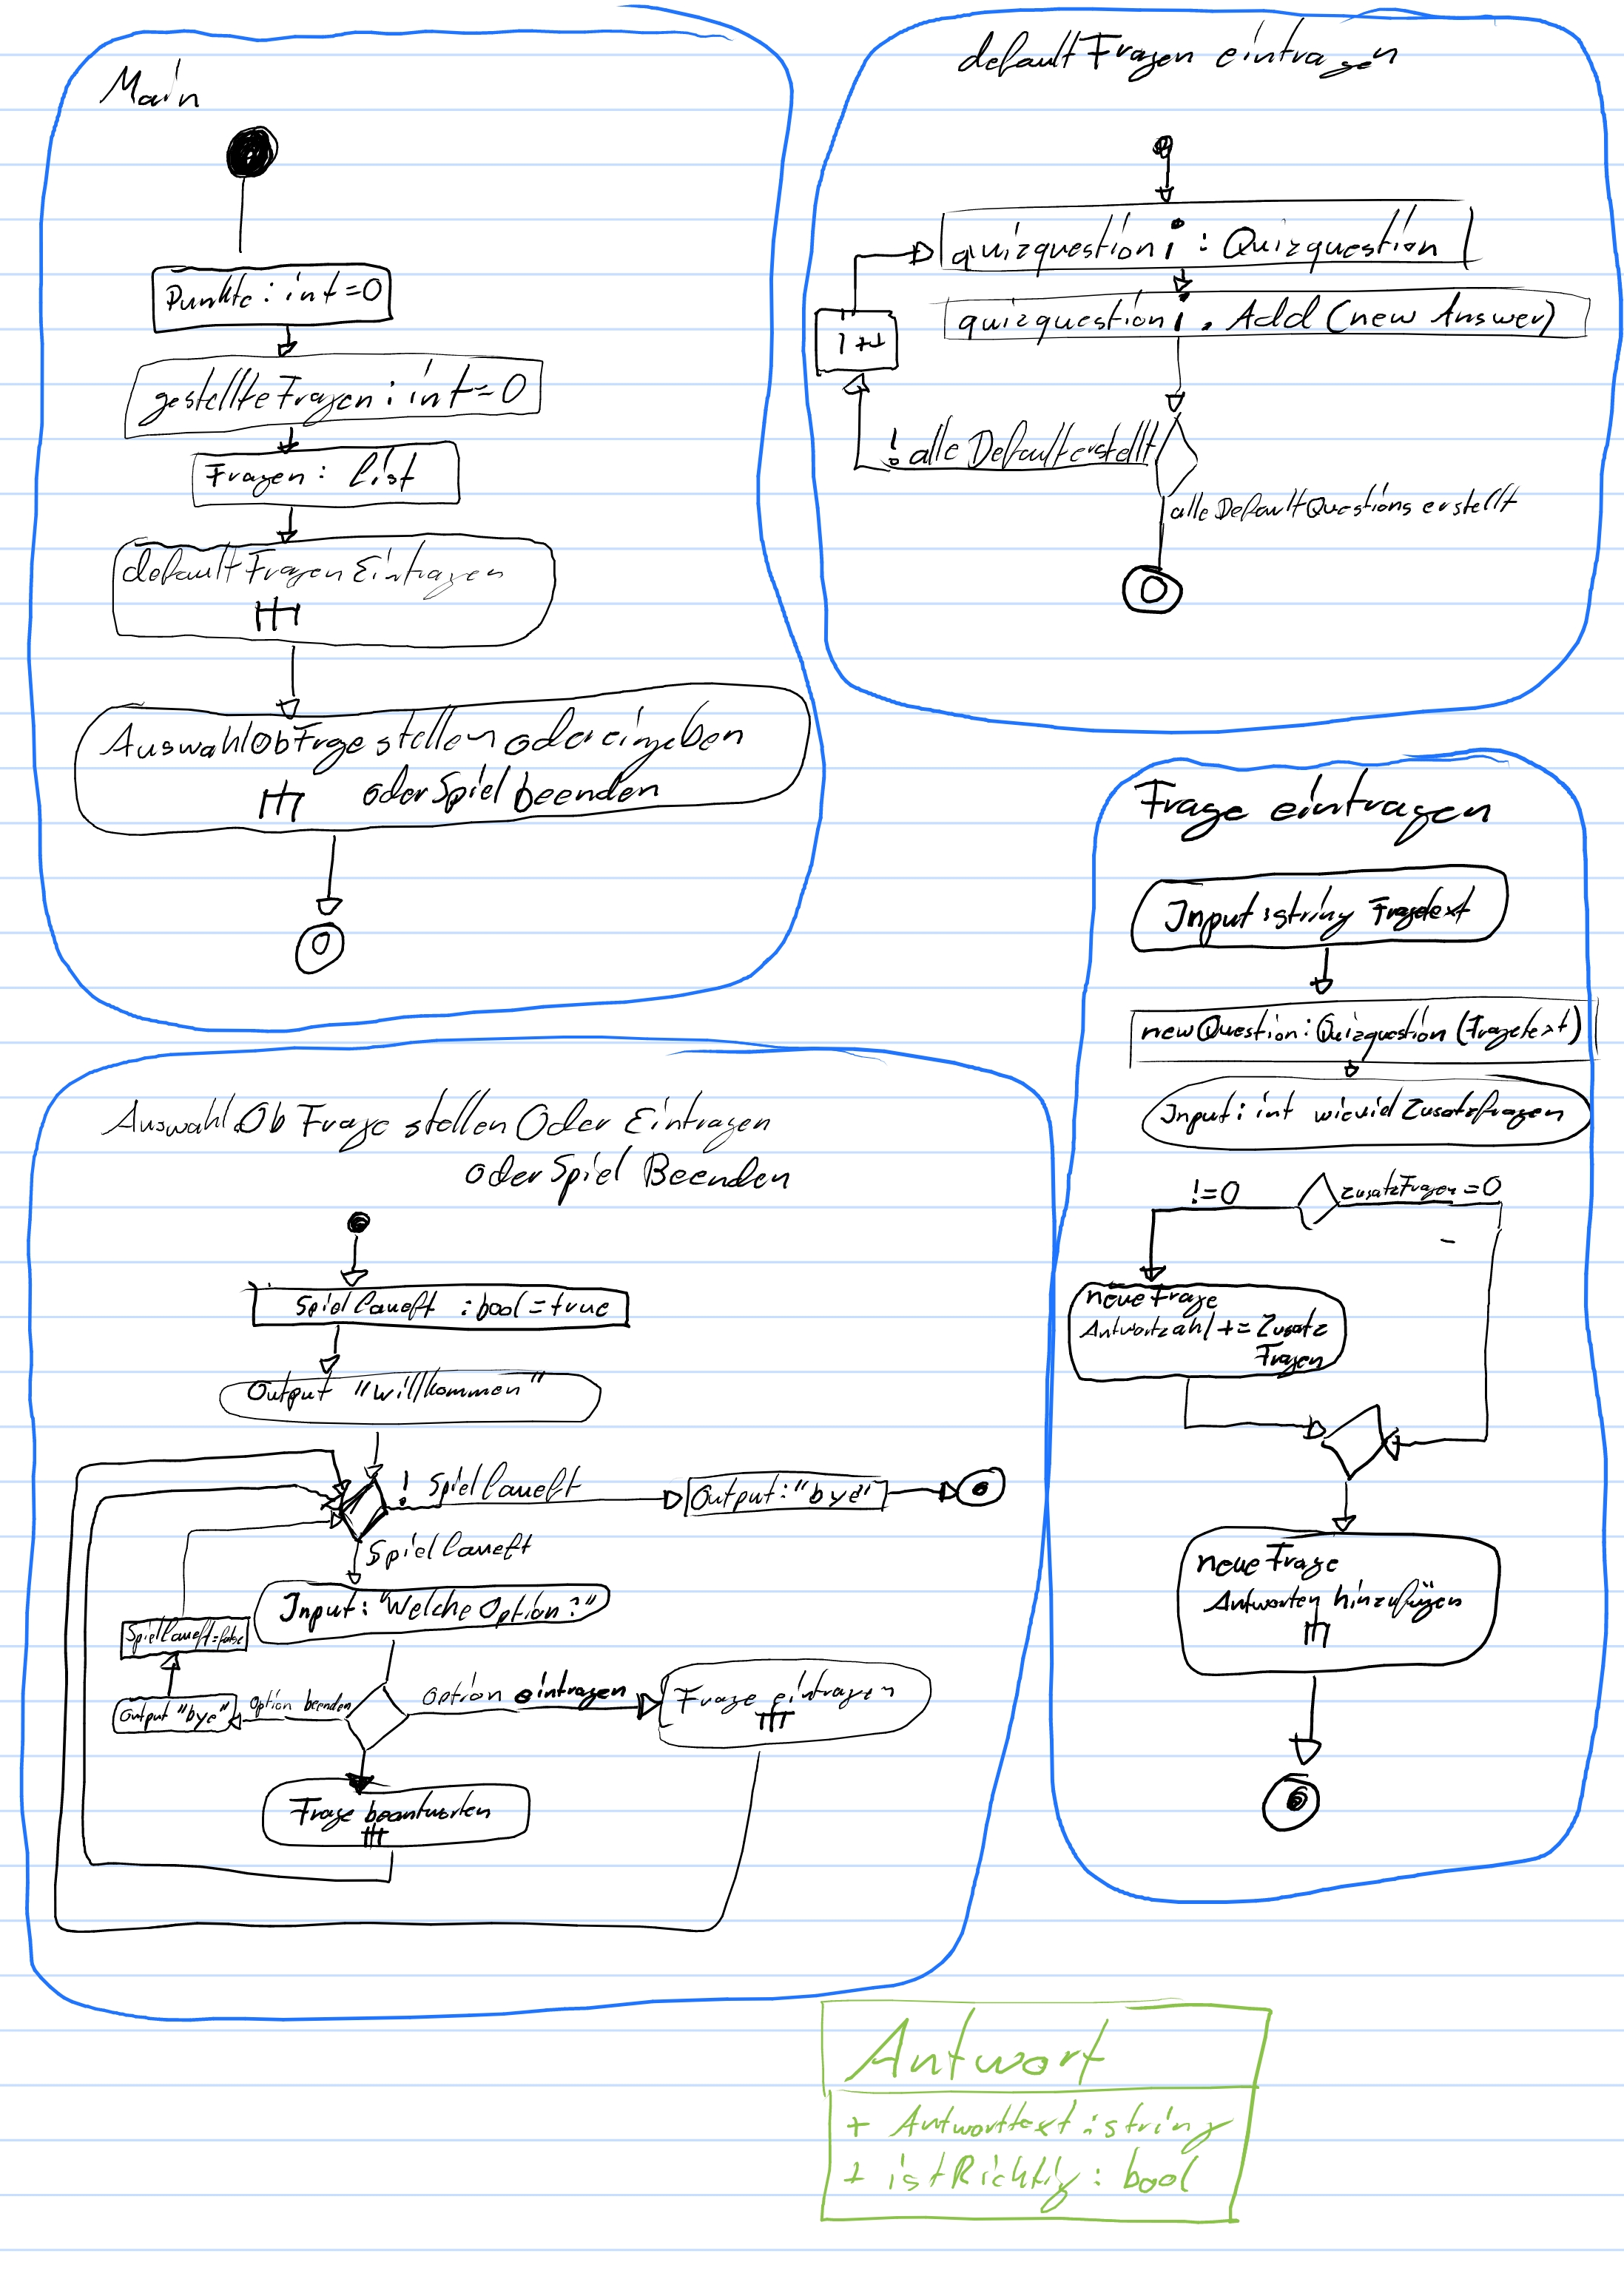 Main
Punkte : int = 0
gestellte Fragen : int = 0
Fragen : List
defaultFragenEintragen
Auswahl Ob Frage stellen oder eingeben
oder Spiel beenden
defaultFragen eintragen
quizquestion i : Quizquestion
quizquestion i . Add (new Answer)
i++
! alle Default erstellt
alle DefaultQuestions erstellt
Frage eintragen
Input : string Fragetext
newQuestion : Quizquestion (Fragetext)
Input : int wieviel Zusatzfragen
!=0
ZusatzFragen = 0
neue Frage
Antwortzahl += Zusatz
Fragen
neue Frage
Antworten hinzufügen
Auswahl Ob Frage stellen Oder Eintragen
oder Spiel Beenden
Spiel laueft : bool = true
Output "willkommen"
! Spiel laueft
Output : "bye"
Spiel laueft
Input : "Welche Option?"
Spiel laueft = false
Output "bye"
Option beenden
Option eintragen
Frage eintragen
Frage beantworten
Antwort
+ Antworttext : string
+ istRichtig : bool